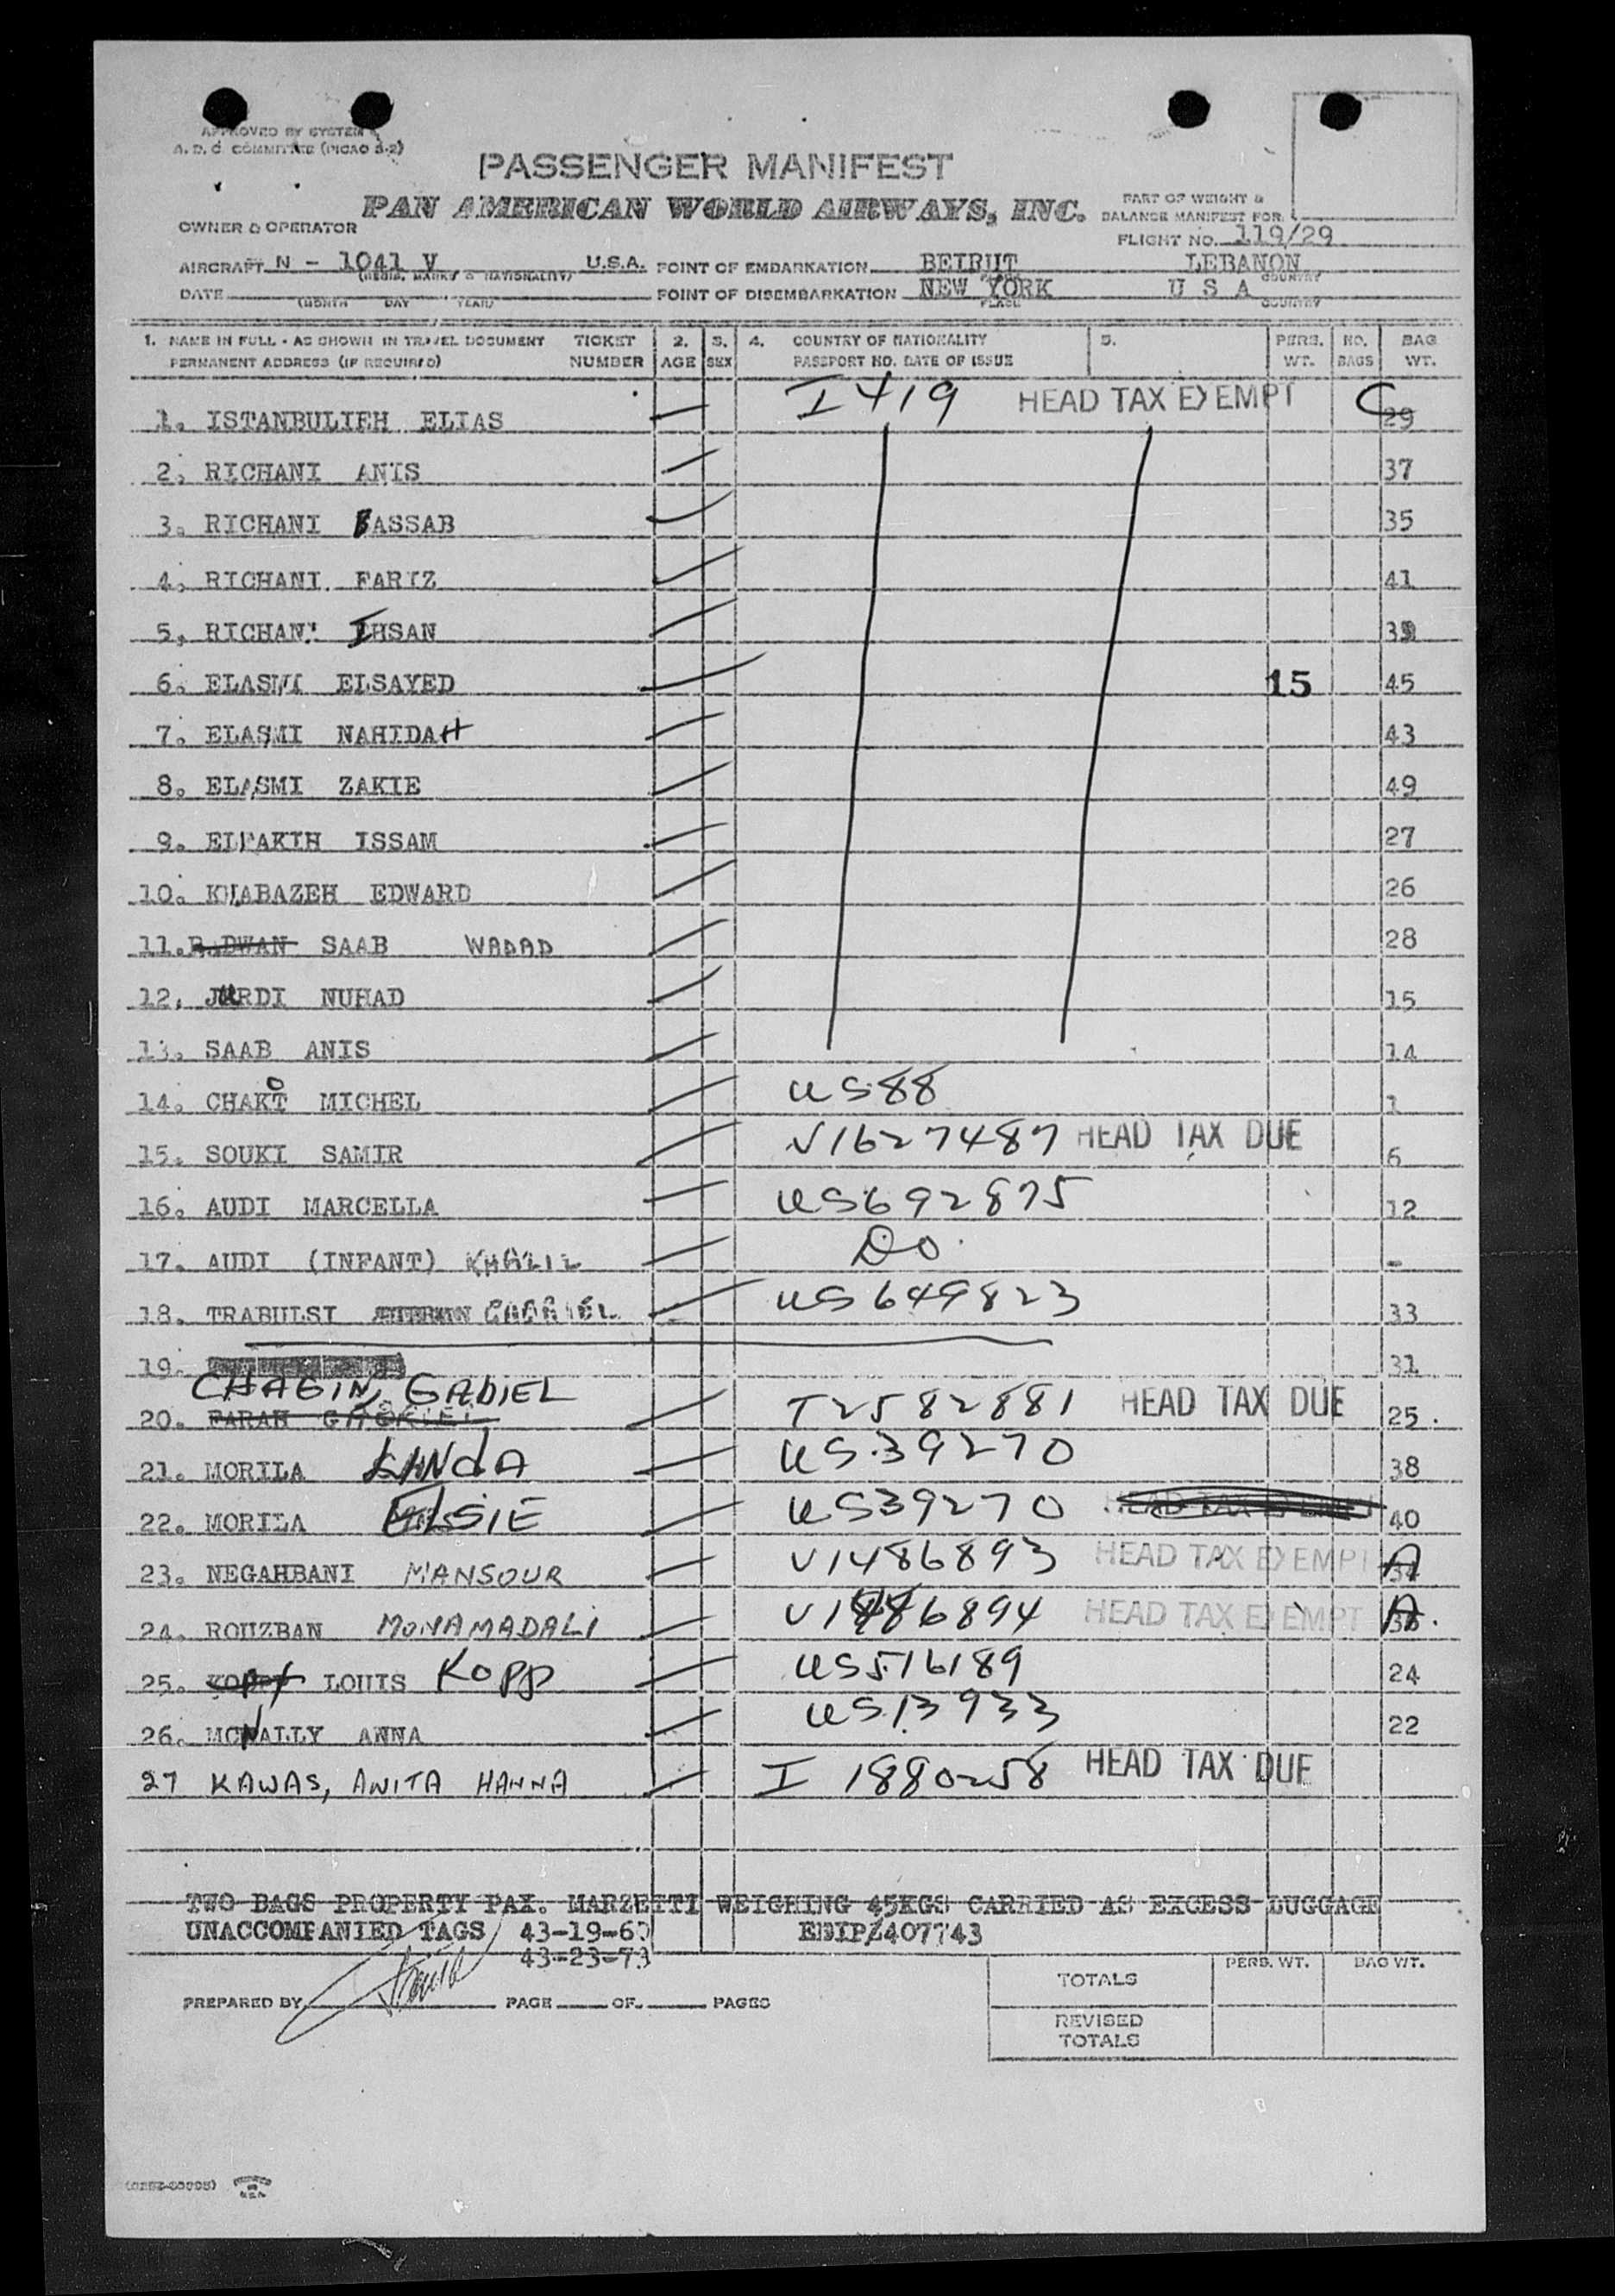 APPROVED BY SYSTEM
A. D. C COMMITTEE (PICAO 3-2)
PASSENGER MANIFEST
PAN AMERICAN WORLD AIRWAYS, INC.
OWNER & OPERATOR
PART OF WEIGHT &
BALANCE MANIFEST FOR
FLIGHT NO. 119/29
AIRCRAFT N - 1041 V U.S.A. POINT OF EMBARKATION BEIRUT LEBANON
(REGIS. MARKS & NATIONALITY) PLACE COUNTRY
DATE POINT OF DISEMBARKATION NEW YORK U S A
(MONTH DAY YEAR) PLACE COUNTRY
1. NAME IN FULL - AS SHOWN IN TRAVEL DOCUMENT TICKET 2. 3. 4. COUNTRY OF NATIONALITY 5. PERS. NO. BAG
PERMANENT ADDRESS (IF REQUIRED) NUMBER AGE SEX PASSPORT NO. DATE OF ISSUE WT. BAGS WT.
1. ISTANBULIEH ELIAS I 419 HEAD TAX EXEMPT C 29
2. RICHANI ANIS 37
3. RICHANI BASSAB 35
4. RICHANI FARIZ 41
5. RICHANI IHSAN 39
6. ELASMI ELSAYED 15 45
7. ELASMI NAHIDAH 43
8. ELASMI ZAKIE 49
9. ELFAKIH ISSAM 27
10. KHABAZEH EDWARD 26
11. RADWAN SAAB WADAD 28
12. JURDI NUHAD 15
13. SAAB ANIS 14
14. CHAKO MICHEL US 88 1
15. SOUKI SAMIR V1627487 HEAD TAX DUE 6
16. AUDI MARCELLA US692875 12
17. AUDI (INFANT) KHALIL DO. -
18. TRABULSI GABRIEL US 649823 33
19. 31
CHAGIN, GADIEL
20. FARAH GABRIEL T2582881 HEAD TAX DUE 25.
21. MORILA LINDA US39270 38
22. MORILA ELSIE US39270 HEAD TAX EXEMPT 40
23. NEGAHBANI MANSOUR V1486893 HEAD TAX EXEMPT A 34
24. ROUZBAN MOHAMADALI V1486894 HEAD TAX EXEMPT A.
25. LOUIS KOPP US516189 24
26. MCNALLY ANNA US13933 22
27 KAWAS, ANITA HANNA I 1880258 HEAD TAX DUE
TWO BAGS PROPERTY PAX. MARZETTI WEIGHING 45KGS CARRIED AS EXCESS LUGGAGE
UNACCOMPANIED TAGS 43-19-60 EBIP/407743
43-23-73
PREPARED BY PAGE OF PAGES
PERS. WT. BAG WT.
TOTALS
REVISED
TOTALS